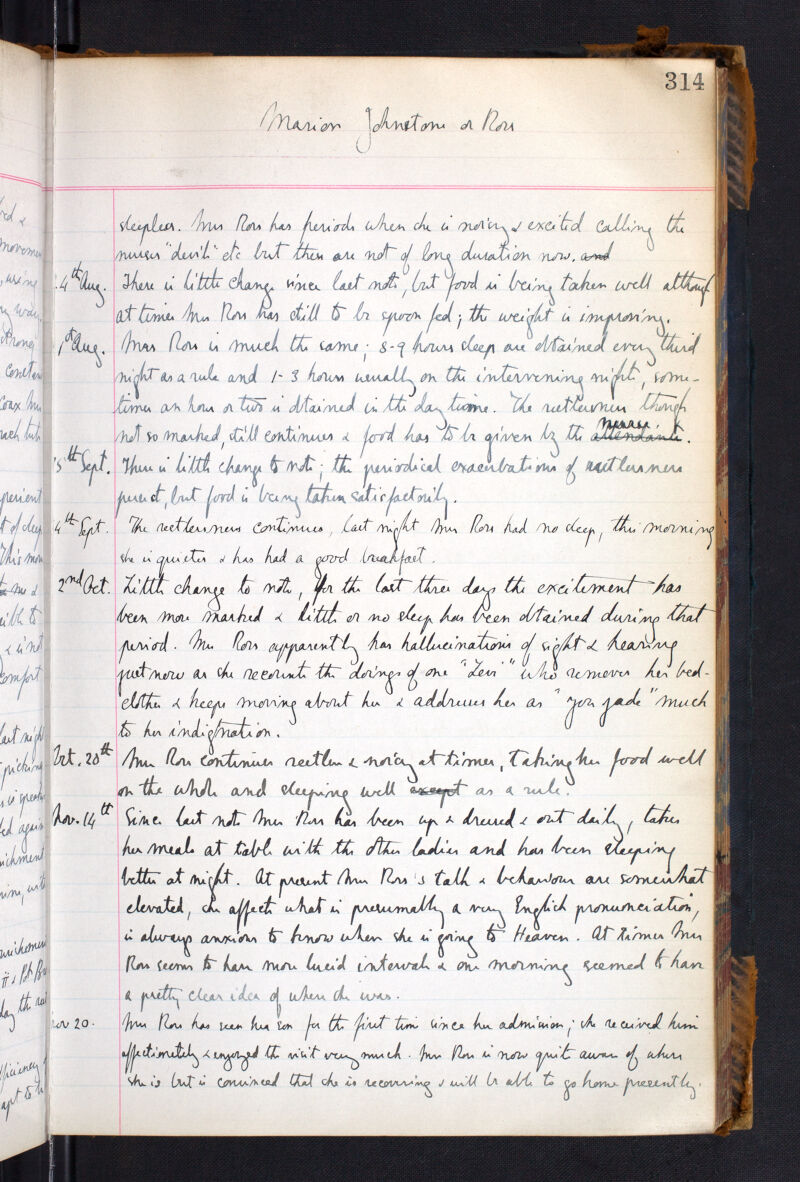 314
Marion Johnstone or Ross
sleepless. Mrs Ross has periods when she is noisy & excited calling the
nurses "devils" etc but these are not of long duration now. and
4th Aug. There is little change since last note, but food is being taken well although
at times Mrs Ross has still to be spoon fed; the weight is improving.
1st Aug. Mrs Ross is much the same; 8-9 hours sleep are obtained every third
night as a rule and 1-3 hours usually on the intervening night, some-
times an hour or two is obtained in the day time. The restlessness though
not so marked, still continues & food has to be given by the attendants. nurses
15th Sept. There is little change to note; the periodical exacerbations of restlessness
persist, but food is being taken satisfactorily.
4th Sept. The restlessness continues, last night Mrs Ross had no sleep, this morning
she is quieter & has had a good breakfast.
2nd Oct. Little change to note, for the last three days the excitement has
been more marked & little or no sleep has been obtained during that
period. Mrs Ross apparently has hallucinations of sight & hearing
just now as she recounts the doings of one "Levi" who removes her bed-
clothes & keeps moving about her & addresses her as "you jade" much
to her indignation.
Oct. 20th Mrs Ross continues restless & noisy at times, taking her food well
on the whole and sleeping well except as a rule.
Nov. 14th Since last note Mrs Ross has been up & dressed & out daily, takes
her meals at table with the other ladies and has been sleeping
better at night. At present Mrs Ross's talk & behaviour are somewhat
elevated, she affects what is presumably a very English pronunciation,
is always anxious to know when she is going to Heaven. At times Mrs
Ross seems to have more lucid intervals & one morning seemed to have
a pretty clear idea of where she was.
Nov 20. Mrs Ross has seen her son for the first time since her admission; she received him
affectionately & enjoyed the visit very much. Mrs Ross is now quite aware of where
she is but is convinced that she is recovering & will be able to go home presently.